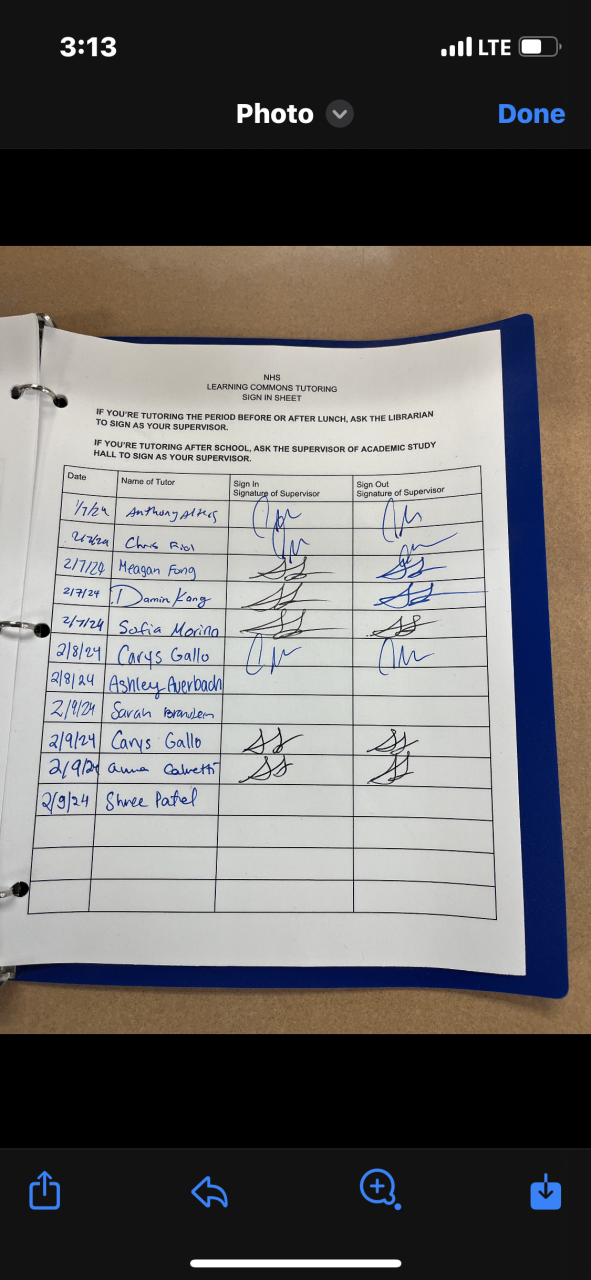 3:13
LTE
Photo
Done
NHS
LEARNING COMMONS TUTORING
SIGN IN SHEET
IF YOU'RE TUTORING THE PERIOD BEFORE OR AFTER LUNCH, ASK THE LIBRARIAN
TO SIGN AS YOUR SUPERVISOR.
IF YOU'RE TUTORING AFTER SCHOOL, ASK THE SUPERVISOR OF ACADEMIC STUDY
HALL TO SIGN AS YOUR SUPERVISOR.
Date Name of Tutor Sign In Signature of Supervisor Sign Out Signature of Supervisor
1/7/24 Anthony
2/7/24 Chris
2/7/24 Meagan Fong
2/7/24 Damin Kang
2/7/24 Sofia Morino
2/8/24 Carys Gallo
2/8/24 Ashley Averbach
2/9/24 Sarah
2/9/24 Carys Gallo
2/9/24 anna Calvetti
2/9/24 Shree Patel